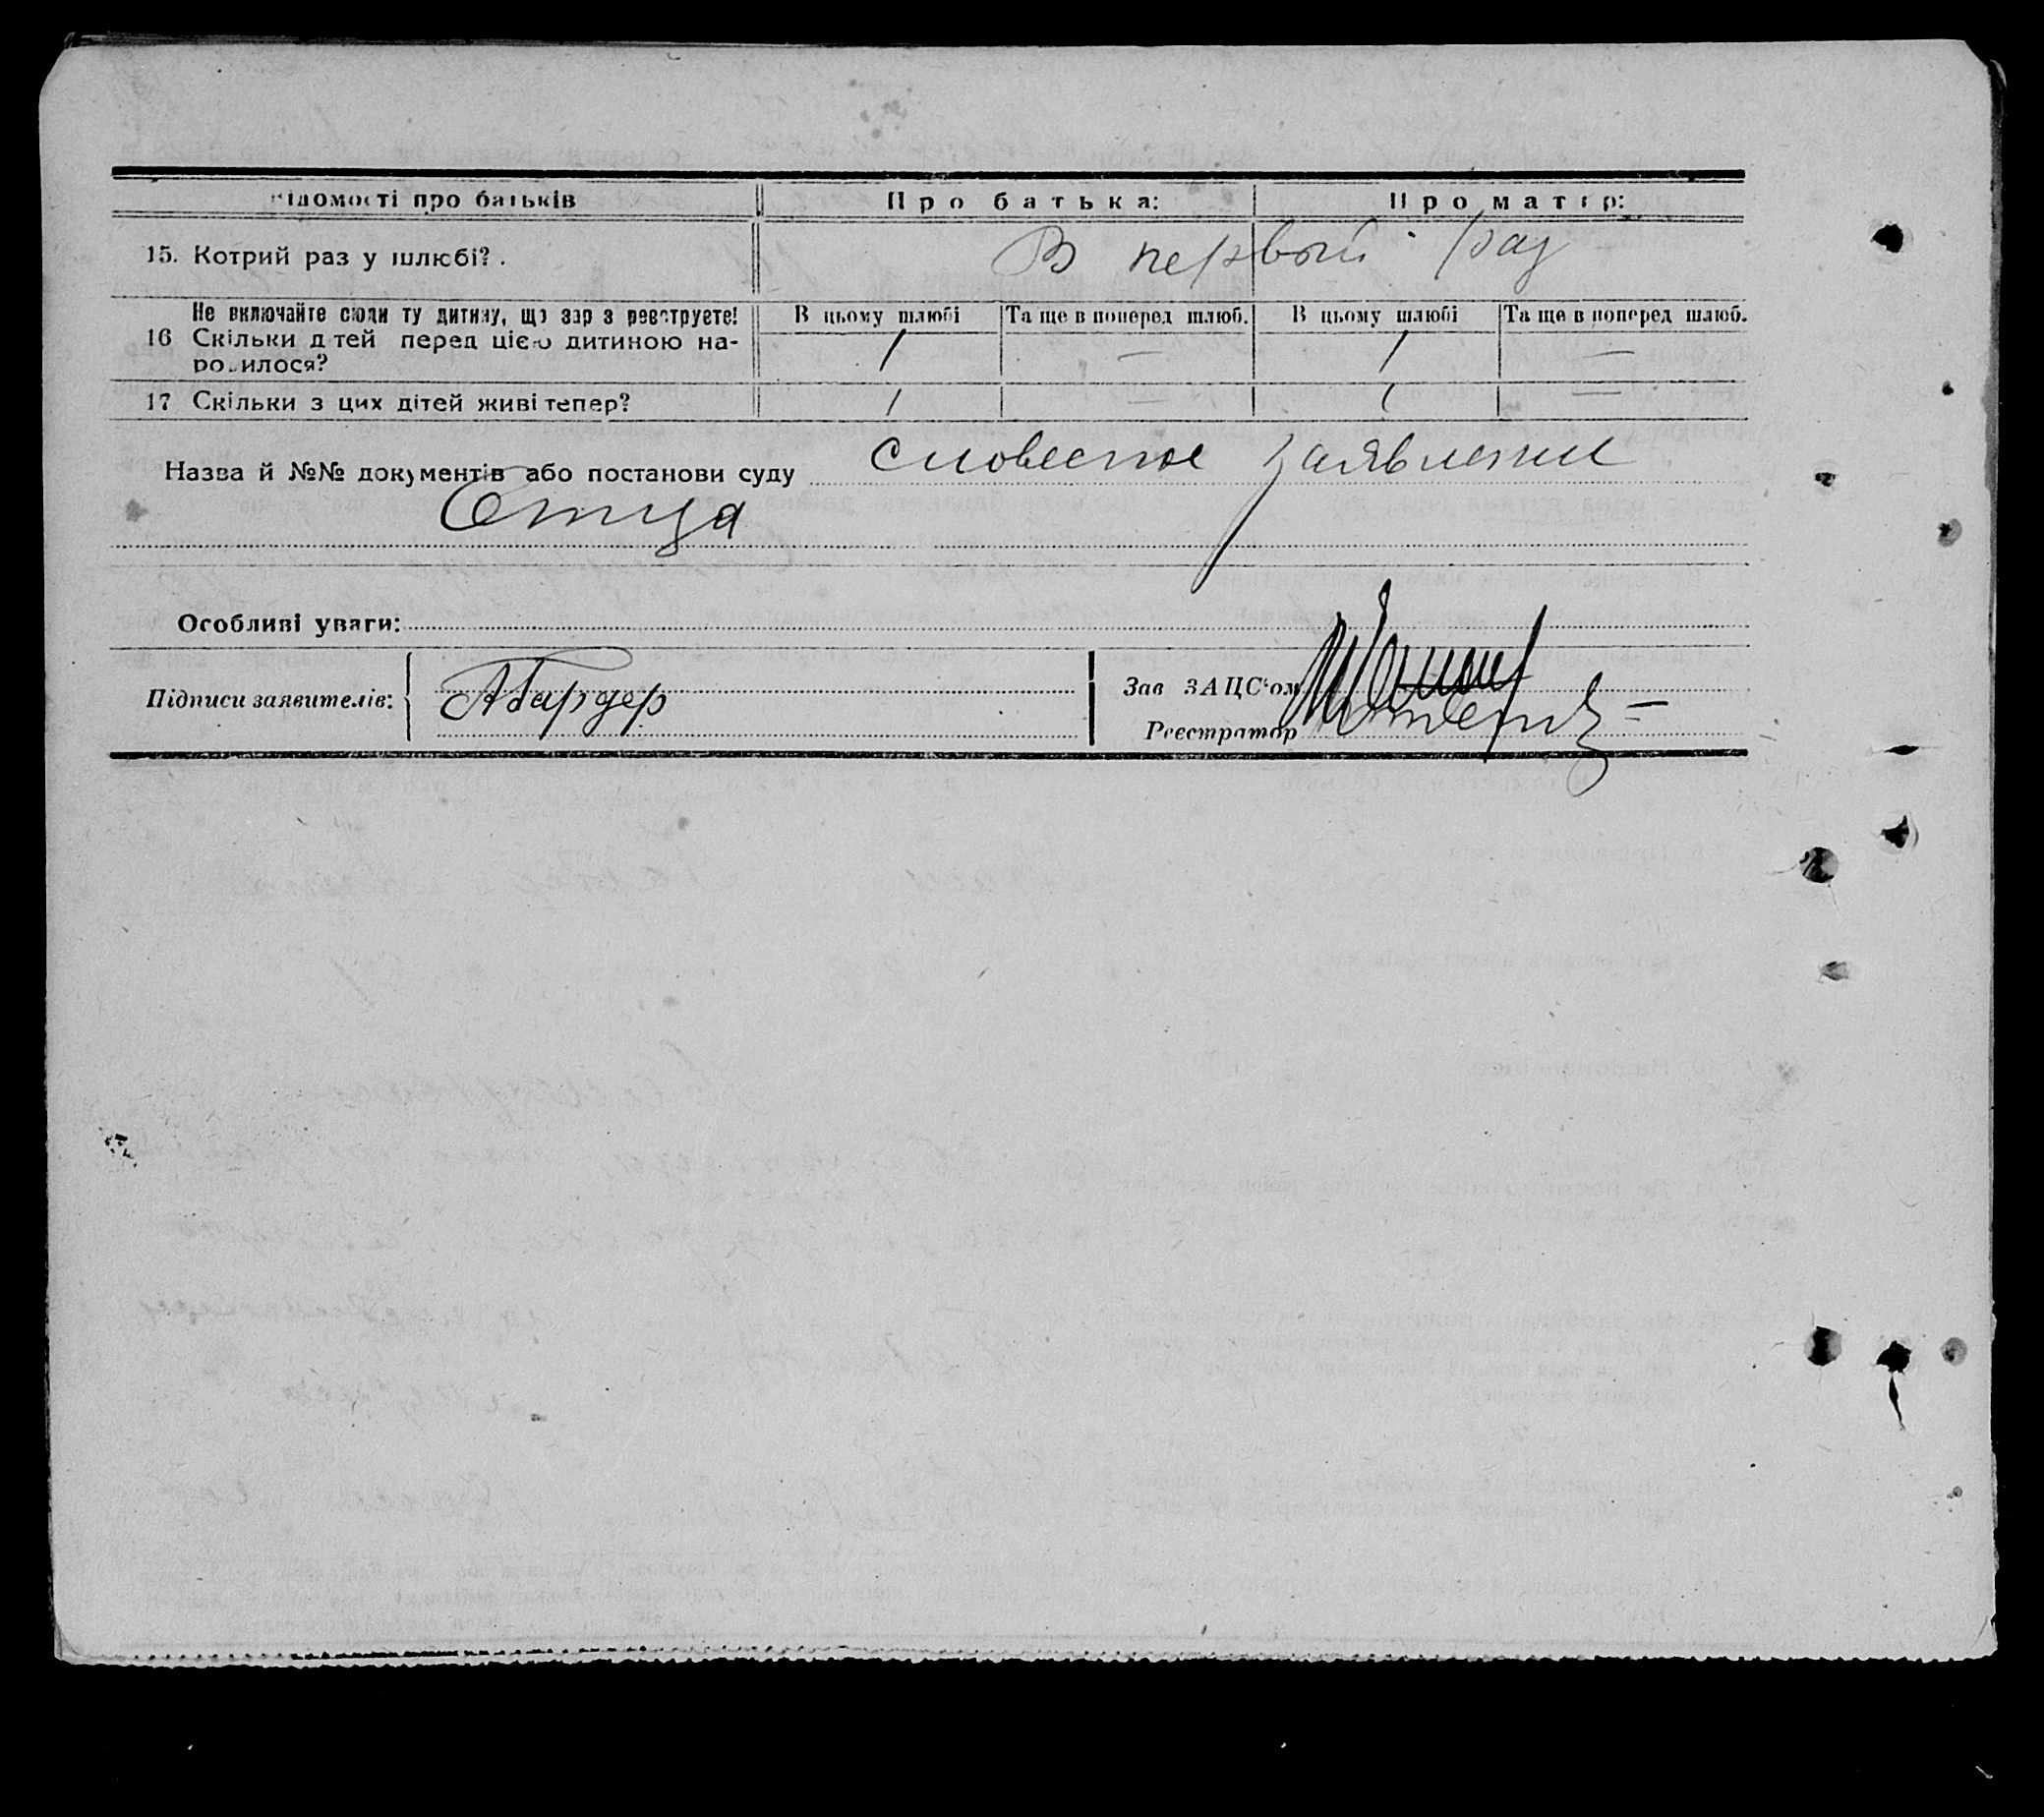 Відомості про батьків Про батька: Про матір:
15. Котрий раз у шлюбі? . В первый раз
Не включайте сюди ту дитину, що зараз реєструєте! В цьому шлюбі Та ще в поперед шлюб. В цьому шлюбі Та ще в поперед шлюб.
16 Скільки дітей перед цією дитиною на-
родилося? 1 — 1 —
17 Скільки з цих дітей живі тепер? 1 — 1 —
Назва й №№ документів або постанови суду словесное заявление
Отца
Особливі уваги:
Підписи заявителів: АБардер
Зав ЗАЦС'ом
Реєстратор